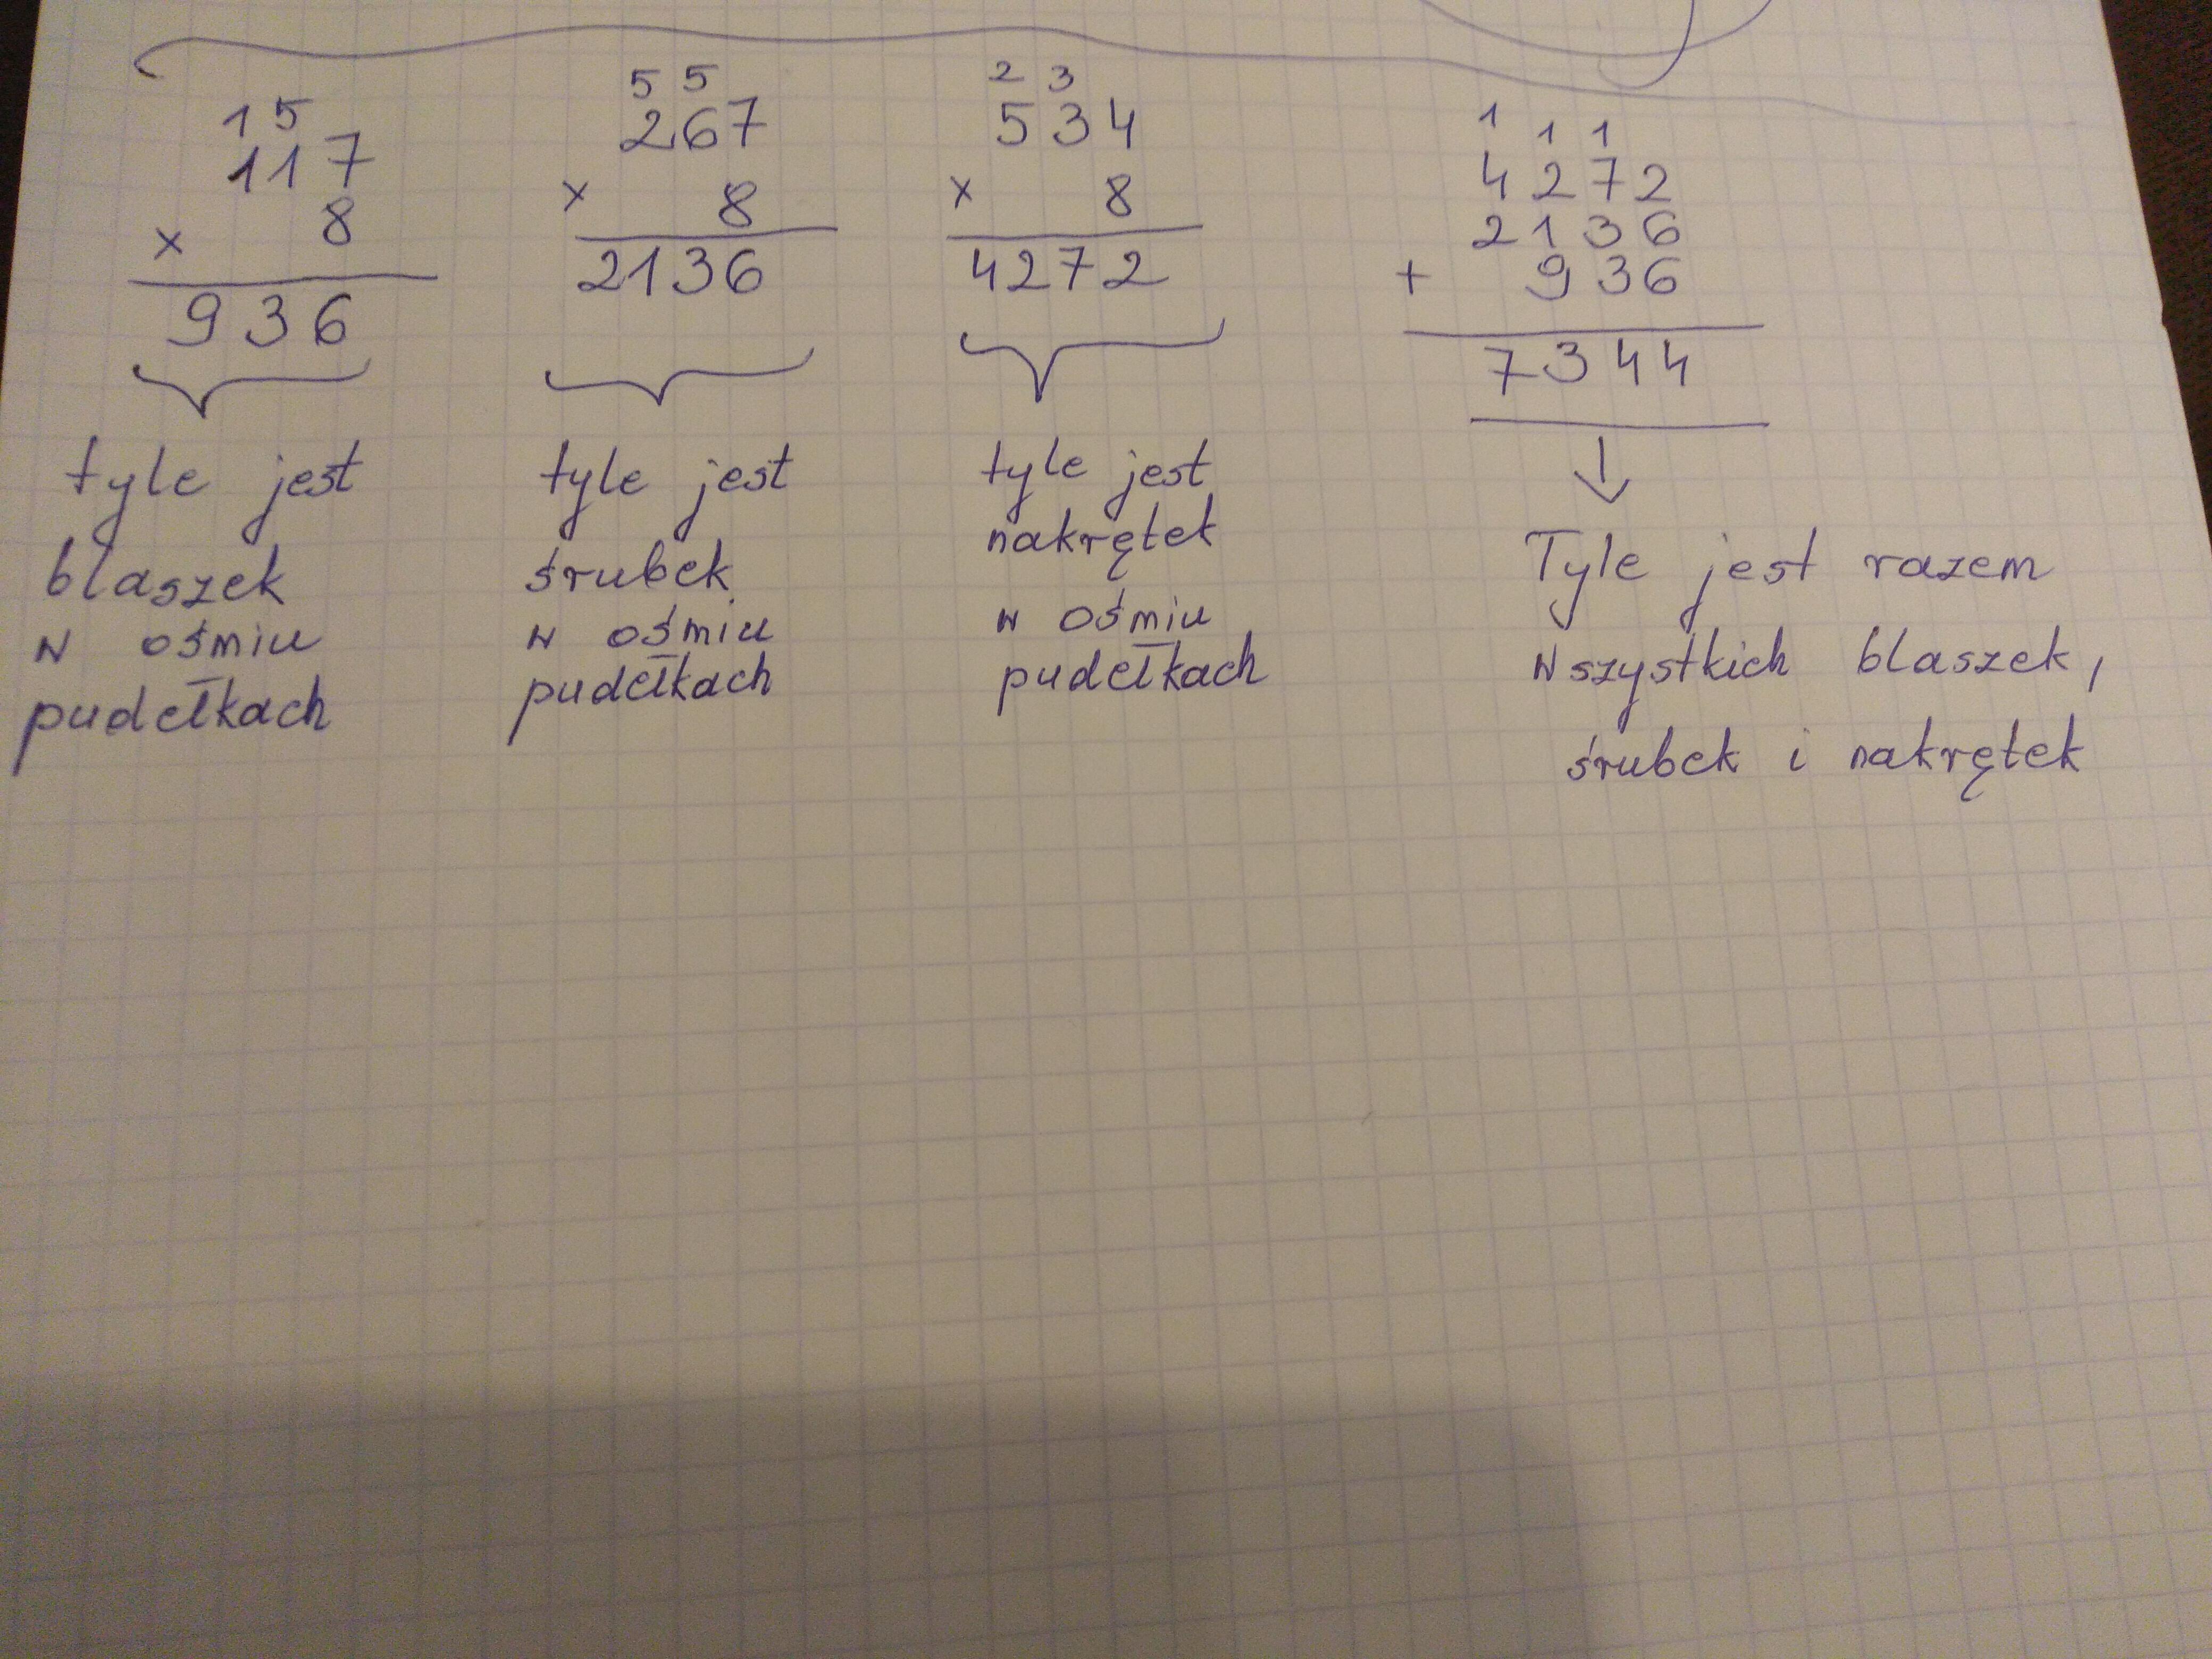 1 5
117
× 8
936
tyle jest
blaszek
w ośmiu
pudełkach
5 5
267
× 8
2136
tyle jest
śrubek
w ośmiu
pudełkach
2 3
534
× 8
4272
tyle jest
nakrętek
w ośmiu
pudełkach
1 1 1
4272
2136
+ 936
7344
↓
Tyle jest razem
wszystkich blaszek,
śrubek i nakrętek